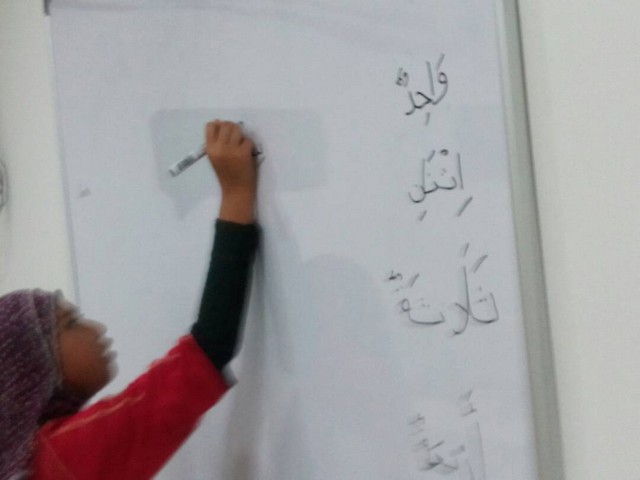 وَاحِدٌ
اِثْنَانِ
ثَلَاثَةٌ